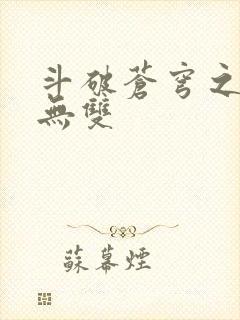 斗破蒼穹之
無雙
蘇幕煙